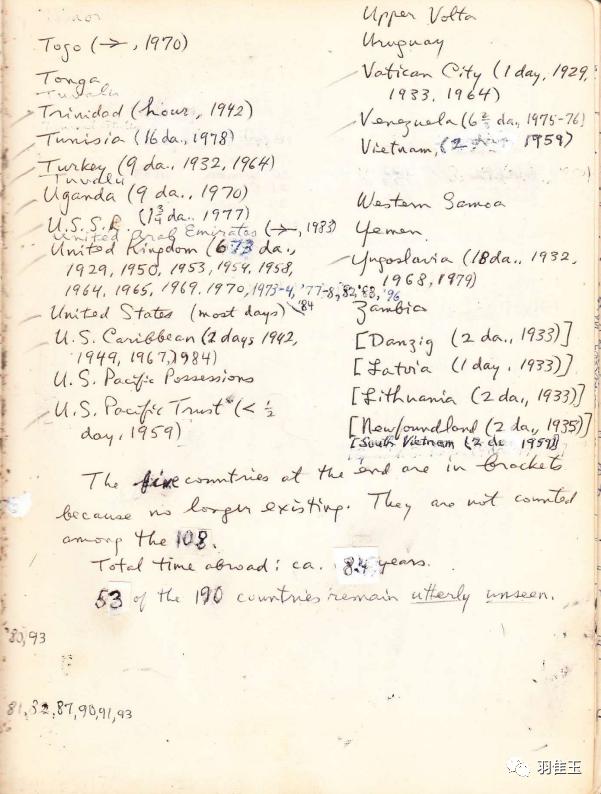 Togo (→, 1970)
Tonga
Tuvalu
Trinidad (hour, 1942)
Tunisia (16 da., 1978)
Turkey (9 da., 1932, 1964)
Tuvalu
Uganda (9 da., 1970)
U.S.S.R. (1¾ da., 1977)
United Arab Emirates (→, 1983)
United Kingdom (673 da.,
1929, 1950, 1953, 1954, 1958,
1964, 1965, 1969, 1970, 1973-4, '77-8, '82, '83, '96
United States (most days) '84
U.S. Caribbean (2 days 1942,
1949, 1967, 1984)
U.S. Pacific Possessions
U.S. Pacific Trust (< ½
day, 1959)
Upper Volta
Uruguay
Vatican City (1 day, 1929,
1933, 1964)
Venezuela (6 da., 1975-76)
Vietnam, (2 1959)
Western Samoa
Yemen
Yugoslavia (18 da., 1932,
1968, 1979)
Zambia
[Danzig (2 da., 1933)]
[Latvia (1 day, 1933)]
[Lithuania (2 da., 1933)]
[Newfoundland (2 da., 1935)]
[South Vietnam (2 da 1959)]
The five countries at the end are in brackets
because no longer existing. They are not counted
among the 108.
Total time abroad: ca. 8.4 years.
53 of the 190 countries remain utterly unseen.
80, 93
81, 82, 87, 90, 91, 93
羽隹玉